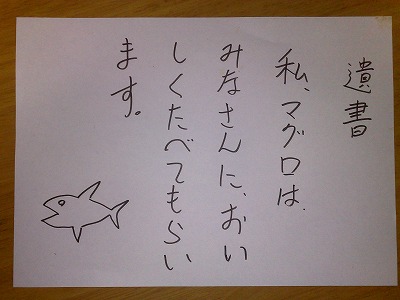 遺書
私、マグロは、
みなさんに、おい
しくたべてもらい
ます。